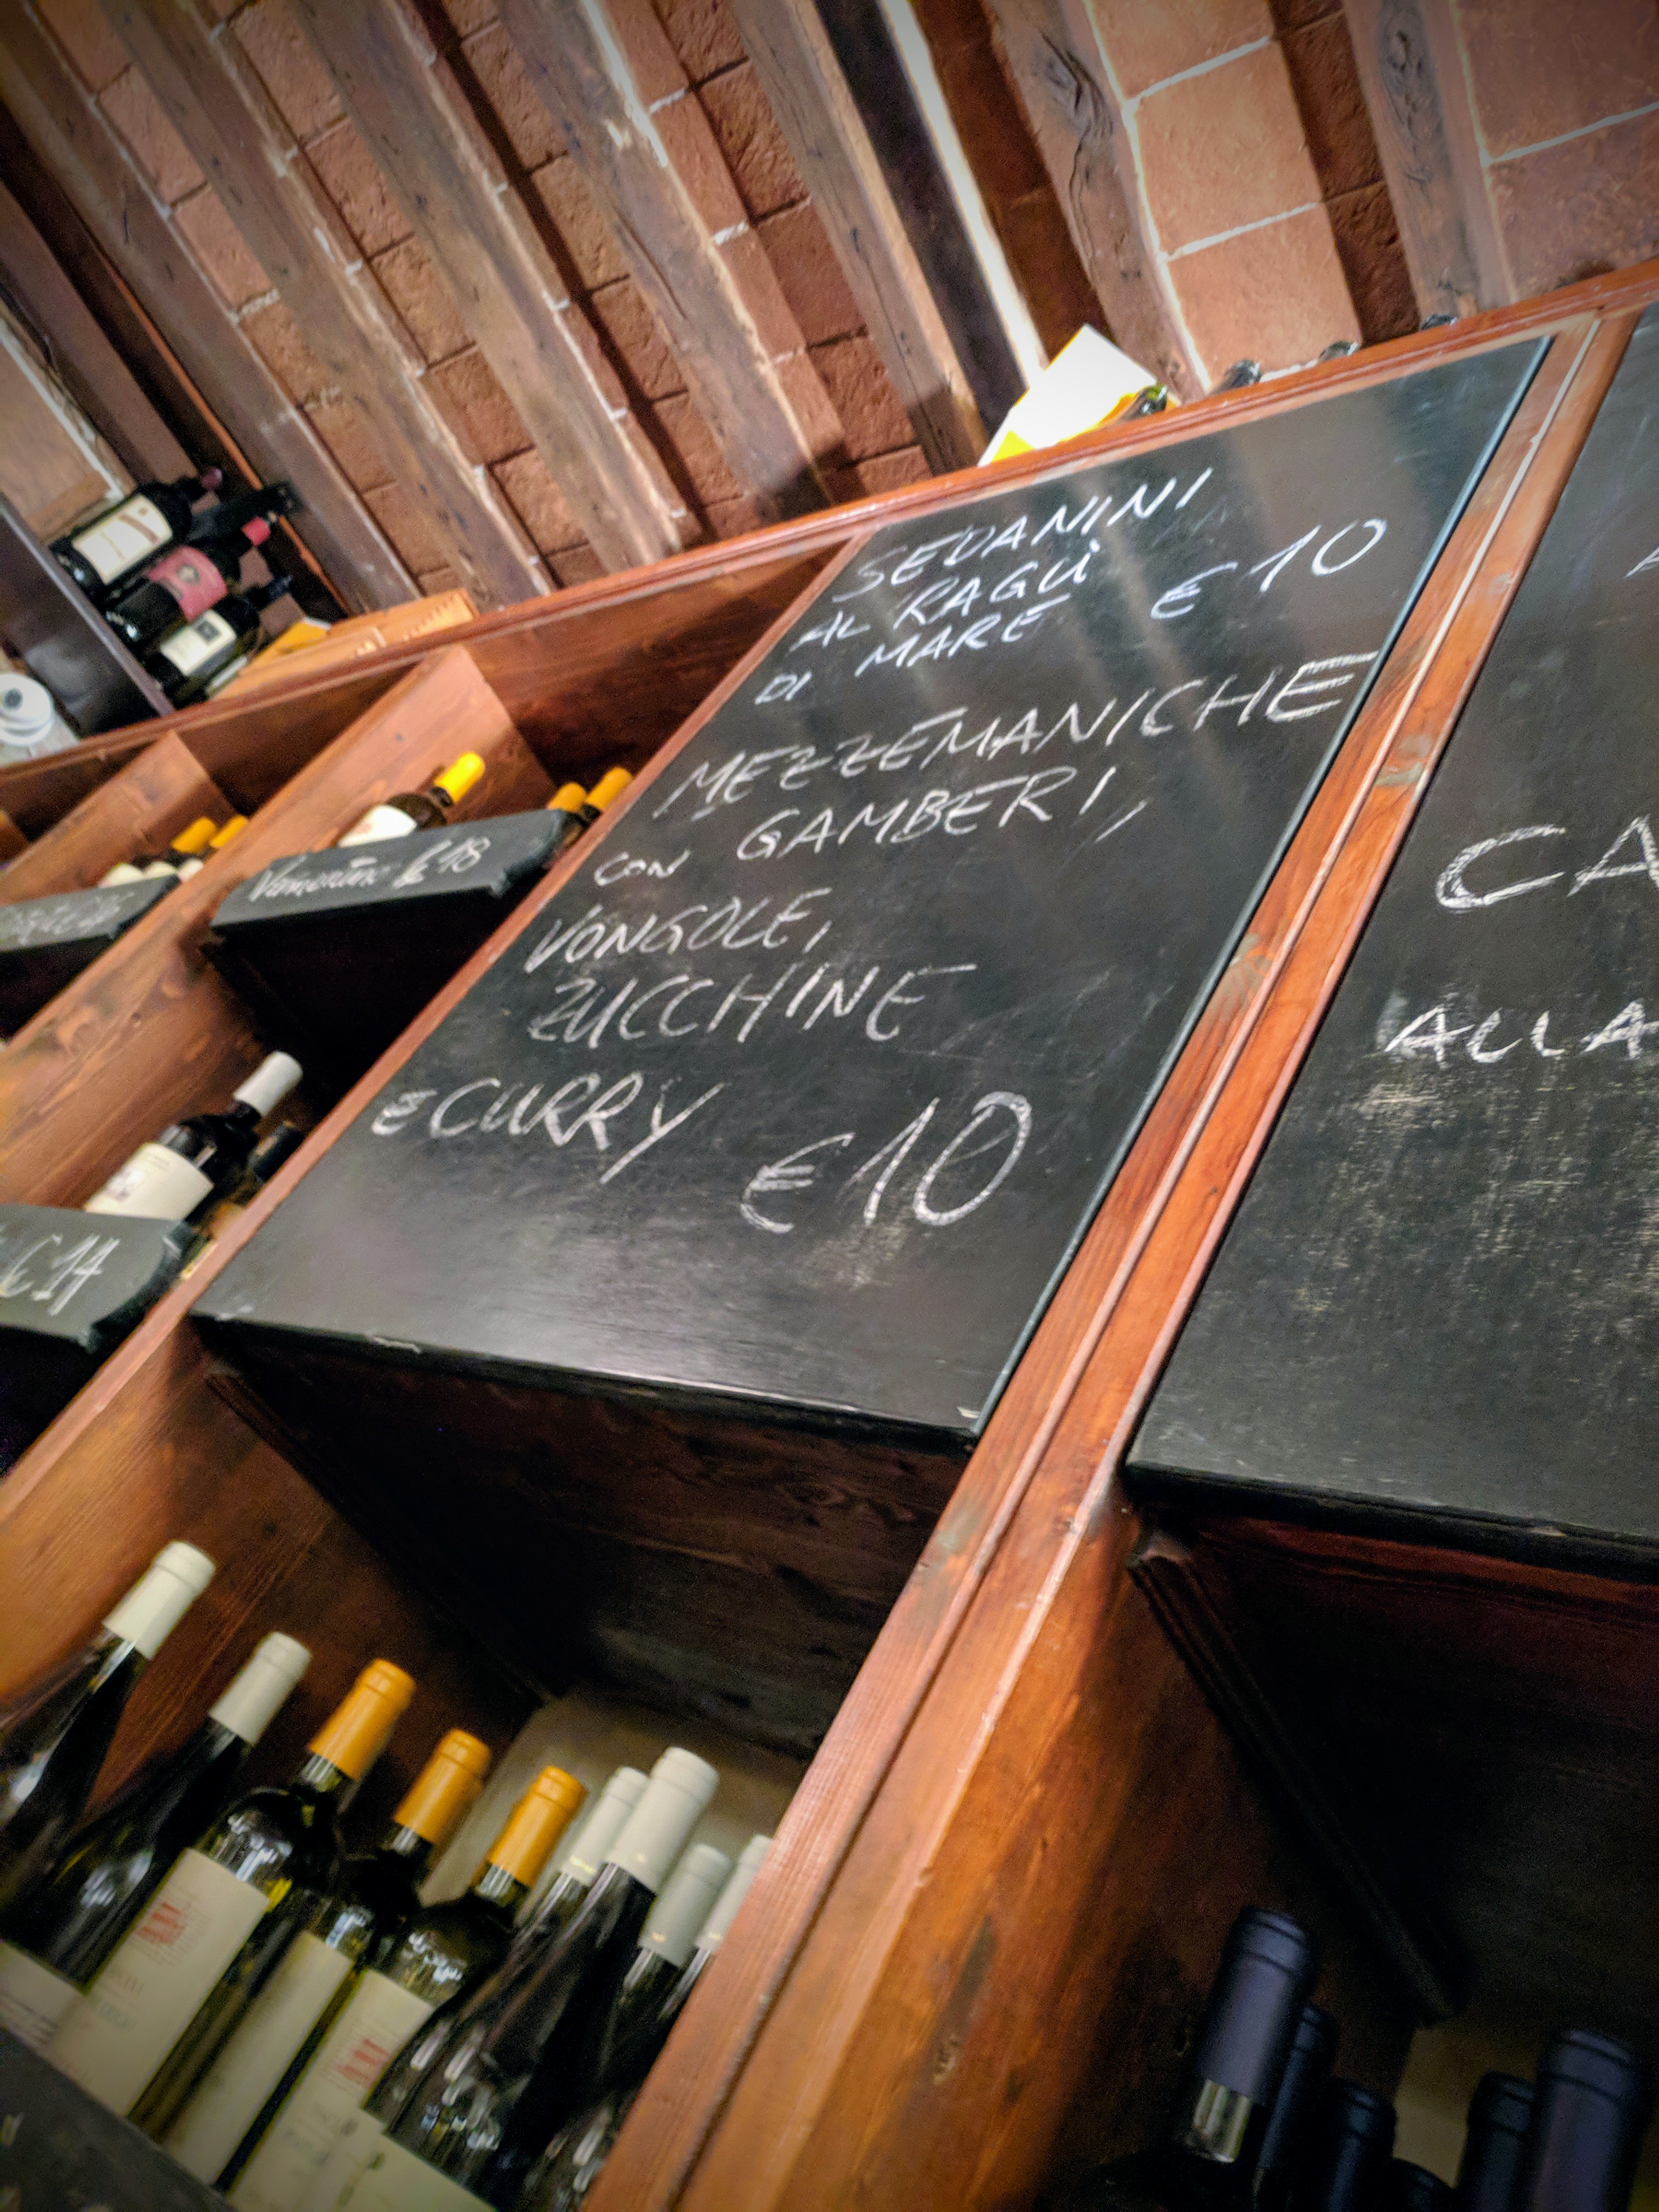 SEDANINI
AL RAGÙ
DI MARE € 10
MEZZEMANICHE
CON GAMBERI,
VONGOLE,
ZUCCHINE
E CURRY € 10
CA
ALLA
€ 18
€ 14